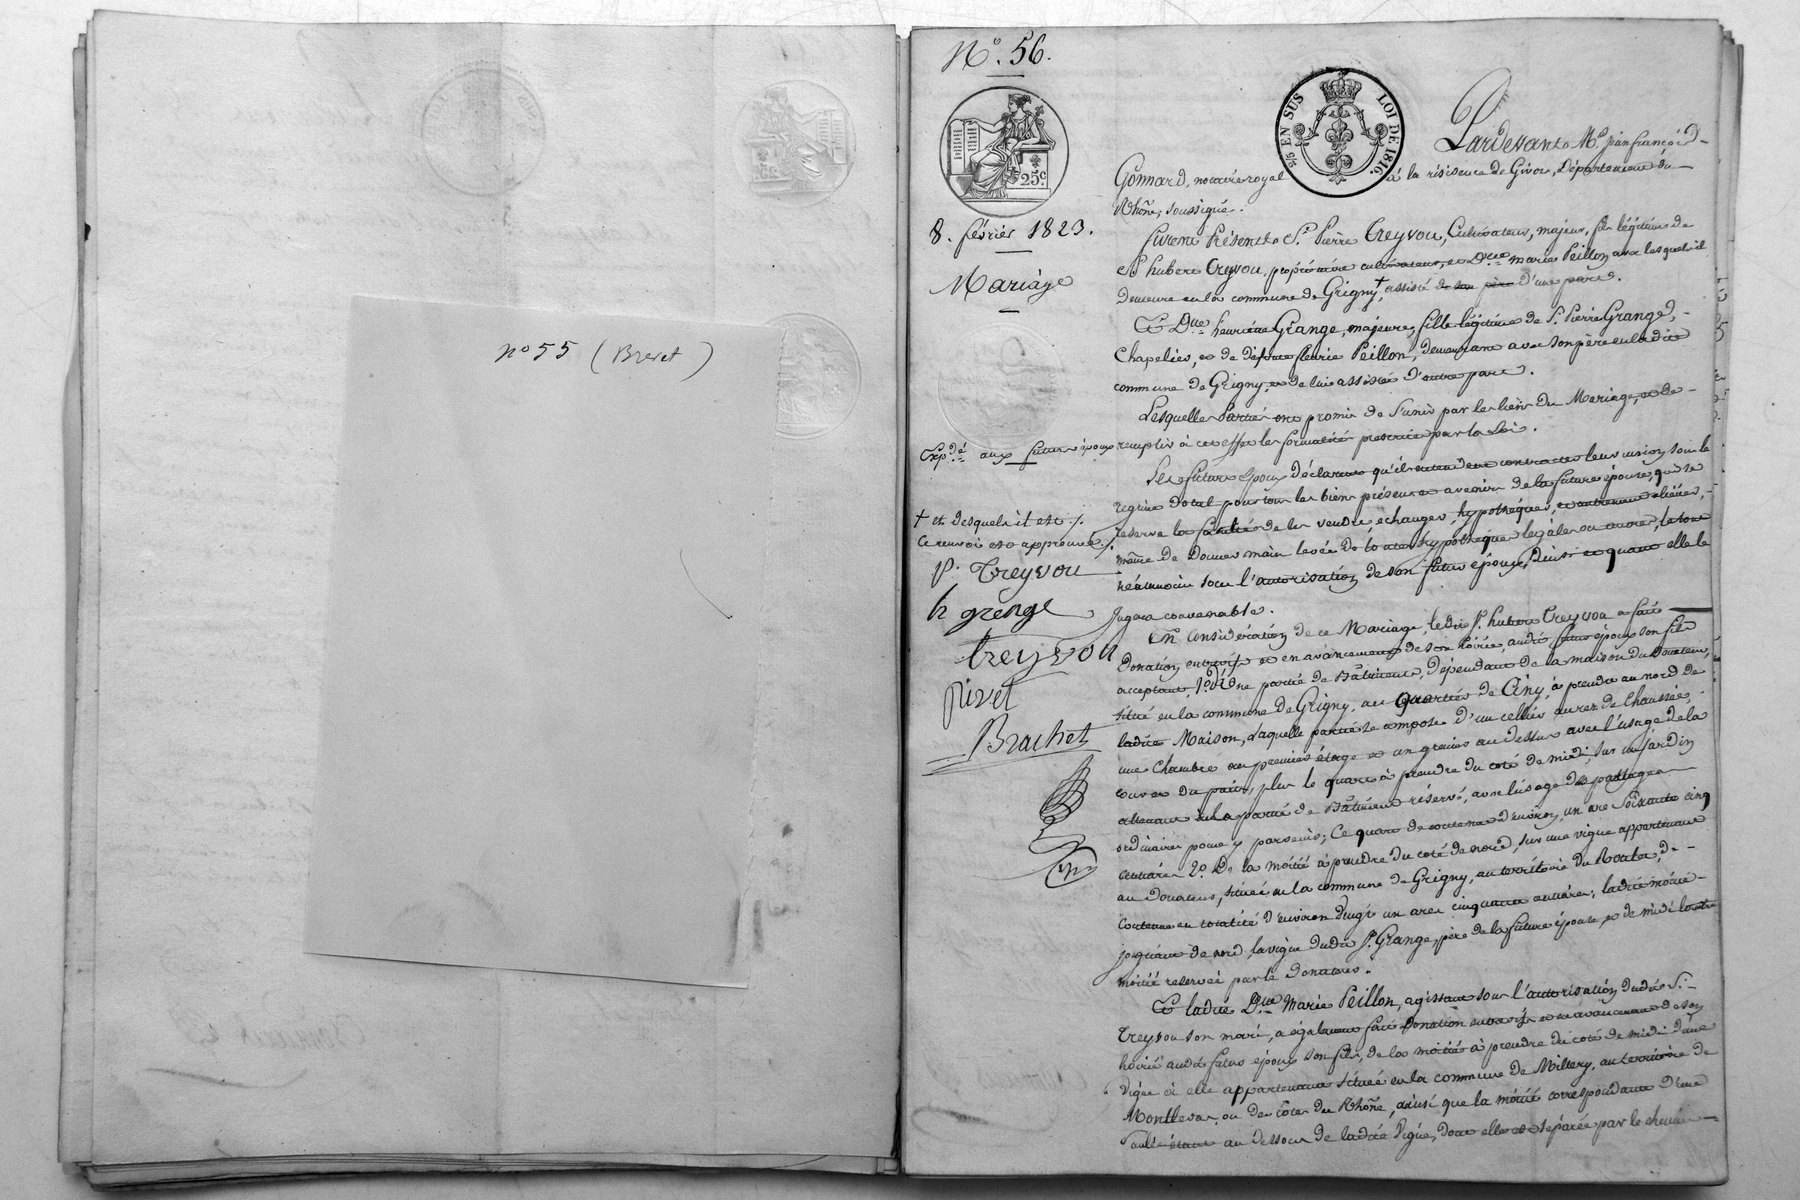 nº 55 (Brevet)
Nº. 56.
25 EN SUS LOI DE 1816.
25c
8. février 1823.
Mariage
Expdé aux futurs époux
+ et desquels il est /.
Ce renvoi est approuvé /.
P. Treyvou
h grenge
treyvou
pivet
Brachet
Pardevant Me. jean françois
Gonnard, notaire royal à la résidence de Givors, Département du
Rhône, soussigné.
furent Présents Sr. Pierre Treyvou, Cultivateur, majeur, fils légitime de
Sr. hubert Treyvou, propriétaire cultivateur, et Dme. marie Peillon avec lesquels il
demeure en la commune de Grigny, + assisté de son père d'une part.
Et Dlle. henriette Grange, majeure, fille légitime de Sr. Pierre Grange,
Chapelier, et de défunte fleurie Peillon, demeurant avec son père en ladite
commune de Grigny, et de lui assistée d'autre part.
Lesquelles Parties ont promis de s'unir par les liens du Mariage, et de
remplir à cet effet les formalités prescrites par la Loi.
Les futurs époux déclarent qu'ils entendent contracter leur union sous le
régime dotal pour tous les biens présents et avenir de la future épouse, qui se
réserve la faculté de les vendre, échanger, hypothéquer, et autrement aliéner,
même de donner main levée de toutes hypothèques légales ou autres, le tout
néanmoins sous l'autorisation de son futur époux, Ainsi et quand elle le
Jugera convenable.
En Considération de ce Mariage, ledit Sr. hubert Treyvou a fait
Donation, entrevifs et en avancement de son hoirie, audit futur époux son fils
acceptant, 1º. D'une partie de Bâtiment, dépendant de la maison du Donateur,
situé en la commune de Grigny, au Quartier de Ciny, à prendre au nord de
ladite Maison, Laquelle partie se compose d'un cellier au rez de Chaussée,
une Chambre au premier étage et un grenier au dessus avec l'usage de la
cour et du puits, plus le quart à prendre du coté de midi, sur un jardin
attenant à la partie de Bâtiment réservé, avec l'usage des passages
ordinaires pour y parvenir; Ce quart de contenue d'environ un are Soixante cinq
centiares 2º. De la moitié à prendre du coté de nord, sur une vigne appartenant
au Donateur, située en la commune de Grigny, au territoire du, de
Contenue en totalité d'environ vingt un ares cinquante centiares; ladite moitié
joignant de nord, la vigne dudit Sr. Grange, père de la future épouse, et de midi l'autre
moitié reservée par le donateur.
Et ladite Dme. Marie Peillon, agissant sous l'autorisation dudit Sr.
Treyvou son mari, a également fait Donation entrevifs et en avancement de son
hoirie audit futur époux son fils, de la moitié à prendre du coté de midi d'une
Vigne à elle appartenante située en la commune de Millery, au territoire de
Montlevar, ou des côtes du Rhône, ainsi que la moitié correspondante d'une
Saulée étant au dessous de ladite Vigne, dont elle est Séparée par le chemin